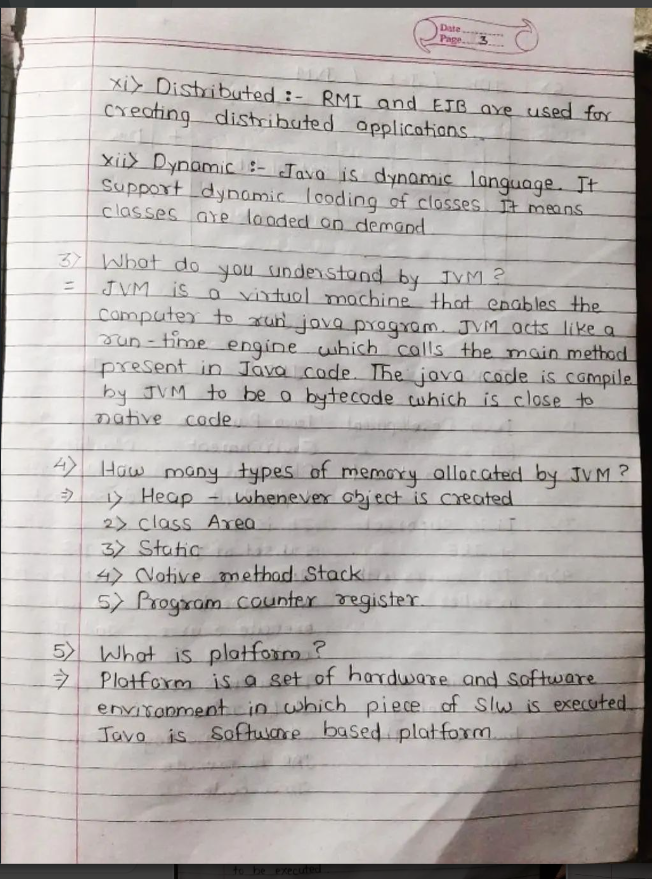 Date
Page 3
xi> Distributed :- RMI and EJB are used for
creating distributed applications
xii> Dynamic :- Java is dynamic language. It
support dynamic loading of classes. It means
classes are loaded on demand
3> What do you understand by JVM ?
= JVM is a virtual machine that enables the
computer to run java program. JVM acts like a
run-time engine which calls the main method
present in Java code. The java code is compile
by JVM to be a bytecode which is close to
native code.
4> How many types of memory allocated by JVM ?
⇒ 1> Heap - whenever object is created
2> class Area
3> Static
4> Native method Stack
5> Program counter register.
5> What is platform ?
⇒ Platform is a set of hardware and software
environment in which piece of S/w is executed.
Java is software based platform.